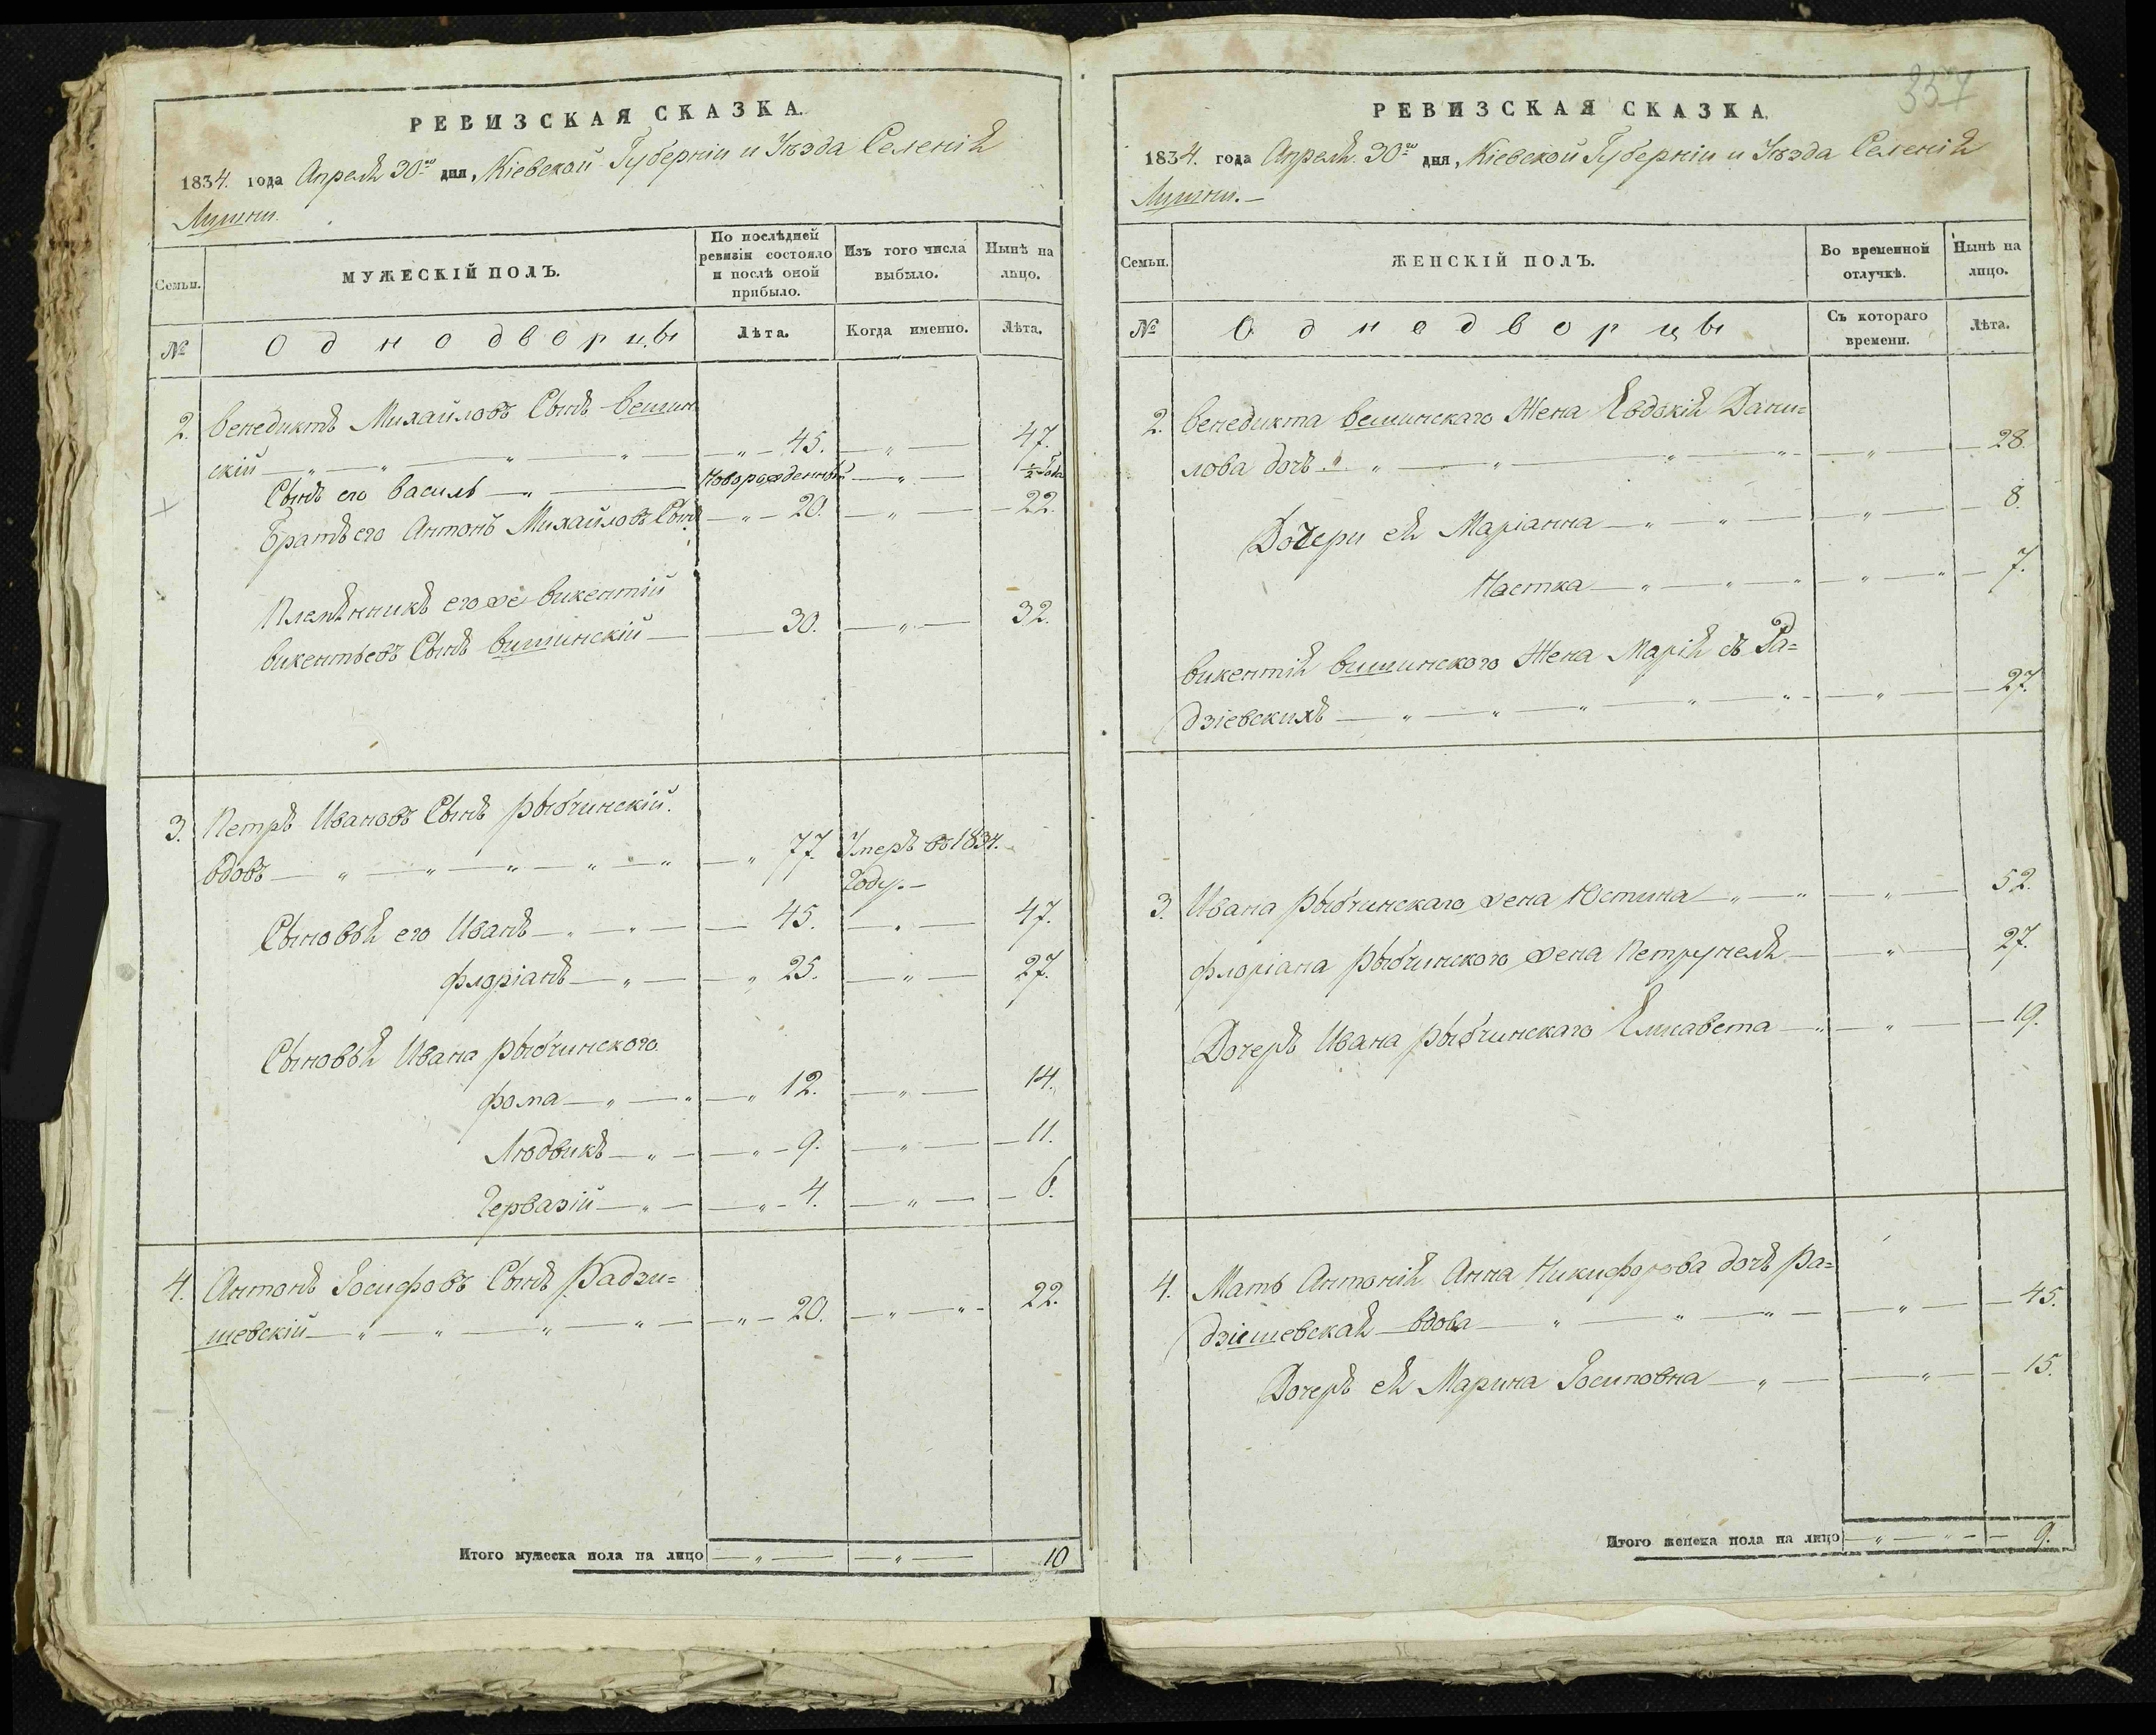 РЕВИЗСКАЯ СКАЗКА.
1834. года Апреля 30го дня, Кіевской Губерніи и Уѣзда Селенія
Семьи.
МУЖЕСКІЙ ПОЛЪ.
По послѣдней ревизіи состояло и послѣ оной прибыло.
Изъ того числа выбыло.
Нынѣ на лицо.
№
Однодворцы
Лѣта.
Когда именно.
Лѣта.
2. Венедиктъ Михайловъ Сынъ Вешин
скій — „ — „ — „ — „ — 45. — „ — 47.
Сынъ его Василь — „ — Новорожденный — „ — ½ года
Братъ его Антонъ Михайловъ Сынъ — „ — 20. — „ — 22.
Племѣнникъ его же Викентій
Викентьевъ Сынъ Вишинскій — 30. — „ — 32.
3. Петръ Ивановъ Сынъ Рыбчинскій.
Вдовъ — „ — „ — „ — „ — „ — „ 77. Умеръ въ 1834.
Году. —
Сыновья его Иванъ — „ — „ — 45. — „ — 47.
Флоріанъ — „ — „ 25. — „ — 27.
Сыновья Ивана Рыбчинского
Фома — „ — „ — „ 12. — „ — 14.
Людвикъ — „ — „ — 9. — „ — 11.
Гервазій — „ — „ — 4. — „ — 6.
4. Антонъ Іосифовъ Сынъ Радзи=
шевскій — „ — „ — „ — „ — „ — 20. — „ — „ — 22.
Итого мужеска пола на лицо — „ — — „ — 10
357
РЕВИЗСКАЯ СКАЗКА.
1834. года Апреля. 30го дня, Кіевской Губерніи и Уѣзда Селенія
Семьи.
ЖЕНСКІЙ ПОЛЪ.
Во временной отлучкѣ.
Нынѣ на лицо.
№
Однодворцы
Съ котораго времени.
Лѣта.
2. Венедикта Вешинскаго Жена Евдокія Дани=
лова дочь „ „ — „ — „ — „ — „ — 28.
Дочери ея Маріанна — „ — „ — „ — 8.
Настка — „ — „ — „ — „ — „ — 7.
Викентія Вишинского Жена Марія съ Ра=
дзіевскихъ — „ — „ — „ — „ — „ — „ — 27.
3. Ивана Рыбчинскаго жена Юстина — „ — „ — „ — 52.
Флоріана Рыбчинского жена Петрунеля — „ — 27.
Дочеръ Ивана Рыбчинскаго Елисавета — „ — „ — 19.
4. Мать Антонія Анна Никифорова дочь Ра=
дзіешевская — вдова — „ — „ — „ — „ — 45.
Дочеръ ея Марина Іосиповна — „ — „ — 15.
Итого женска пола на лицо — „ — „ — 9.